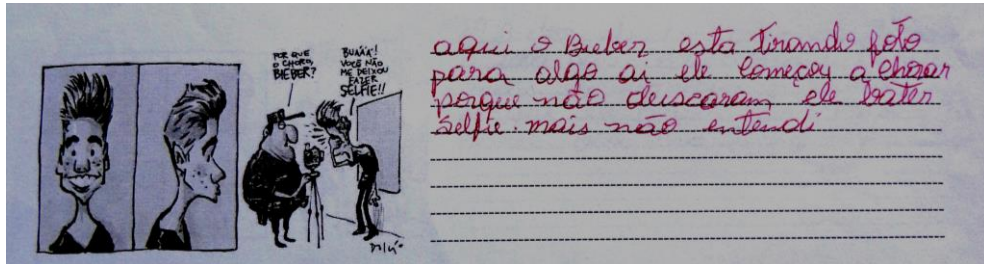 POR QUE
O CHORO,
BIEBER?
BUÁÁÁ!
VOCÊ NÃO
ME DEIXOU
FAZER
SELFIE!!
aqui o Bieber esta tirando foto
para algo ai ele começou a chorar
porque não deixaram ele bater
selfie. mais não entendi